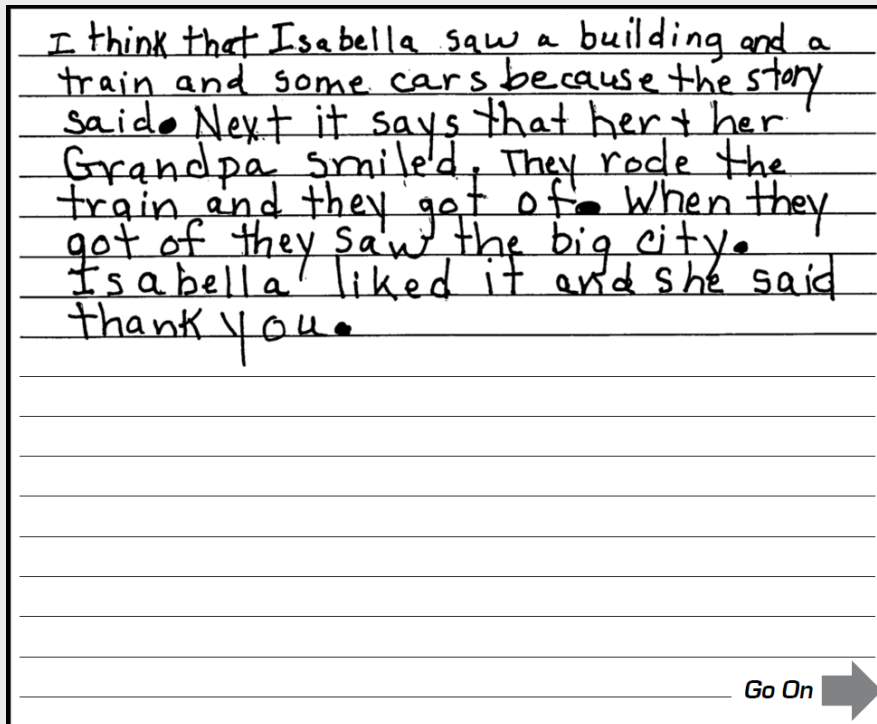 I think that Isabella saw a building and a
train and some cars because the story
said. Next it says that her + her
Grandpa smiled. They rode the
train and they got of. When they
got of they saw the big city.
Isabella liked it and she said
thank you.
Go On